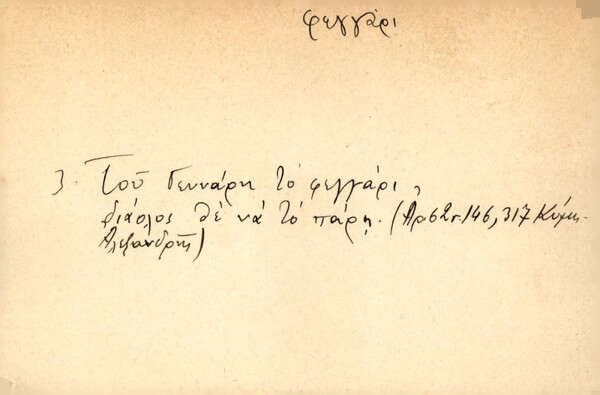 φεγγάρι
3. Τοῦ Γεννάρη τὸ φεγγάρι,
διάολος θὲ νὰ τὸ πάρῃ. (Αρ62 146, 317 Κύμη-
Αλεξανδρῆς)